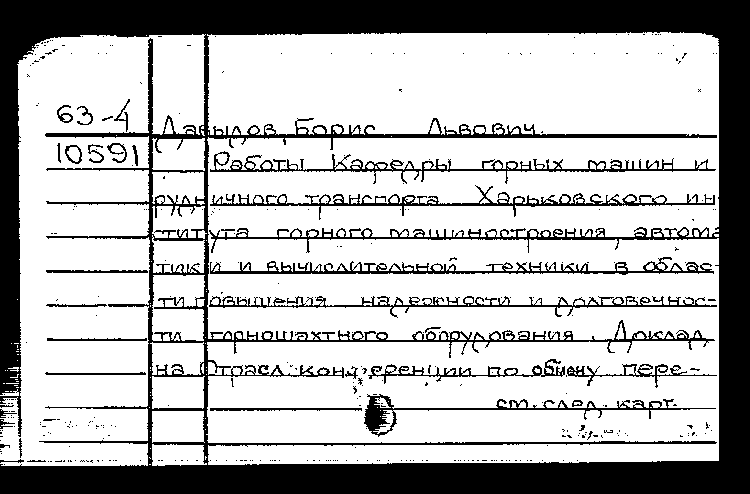 63-4 Давыдов, Борис Львович.
10591 Работы Кафедры горных машин и
рудничного транспорта Харьковского ин-
ститута горного машиностроения, автома
тики и вычислительной техники в облас-
ти повышения надежности и долговечнос-
ти горношахтного оборудования. Доклад
на Отрасл. конференции по обмену пере-
см. след. карт.